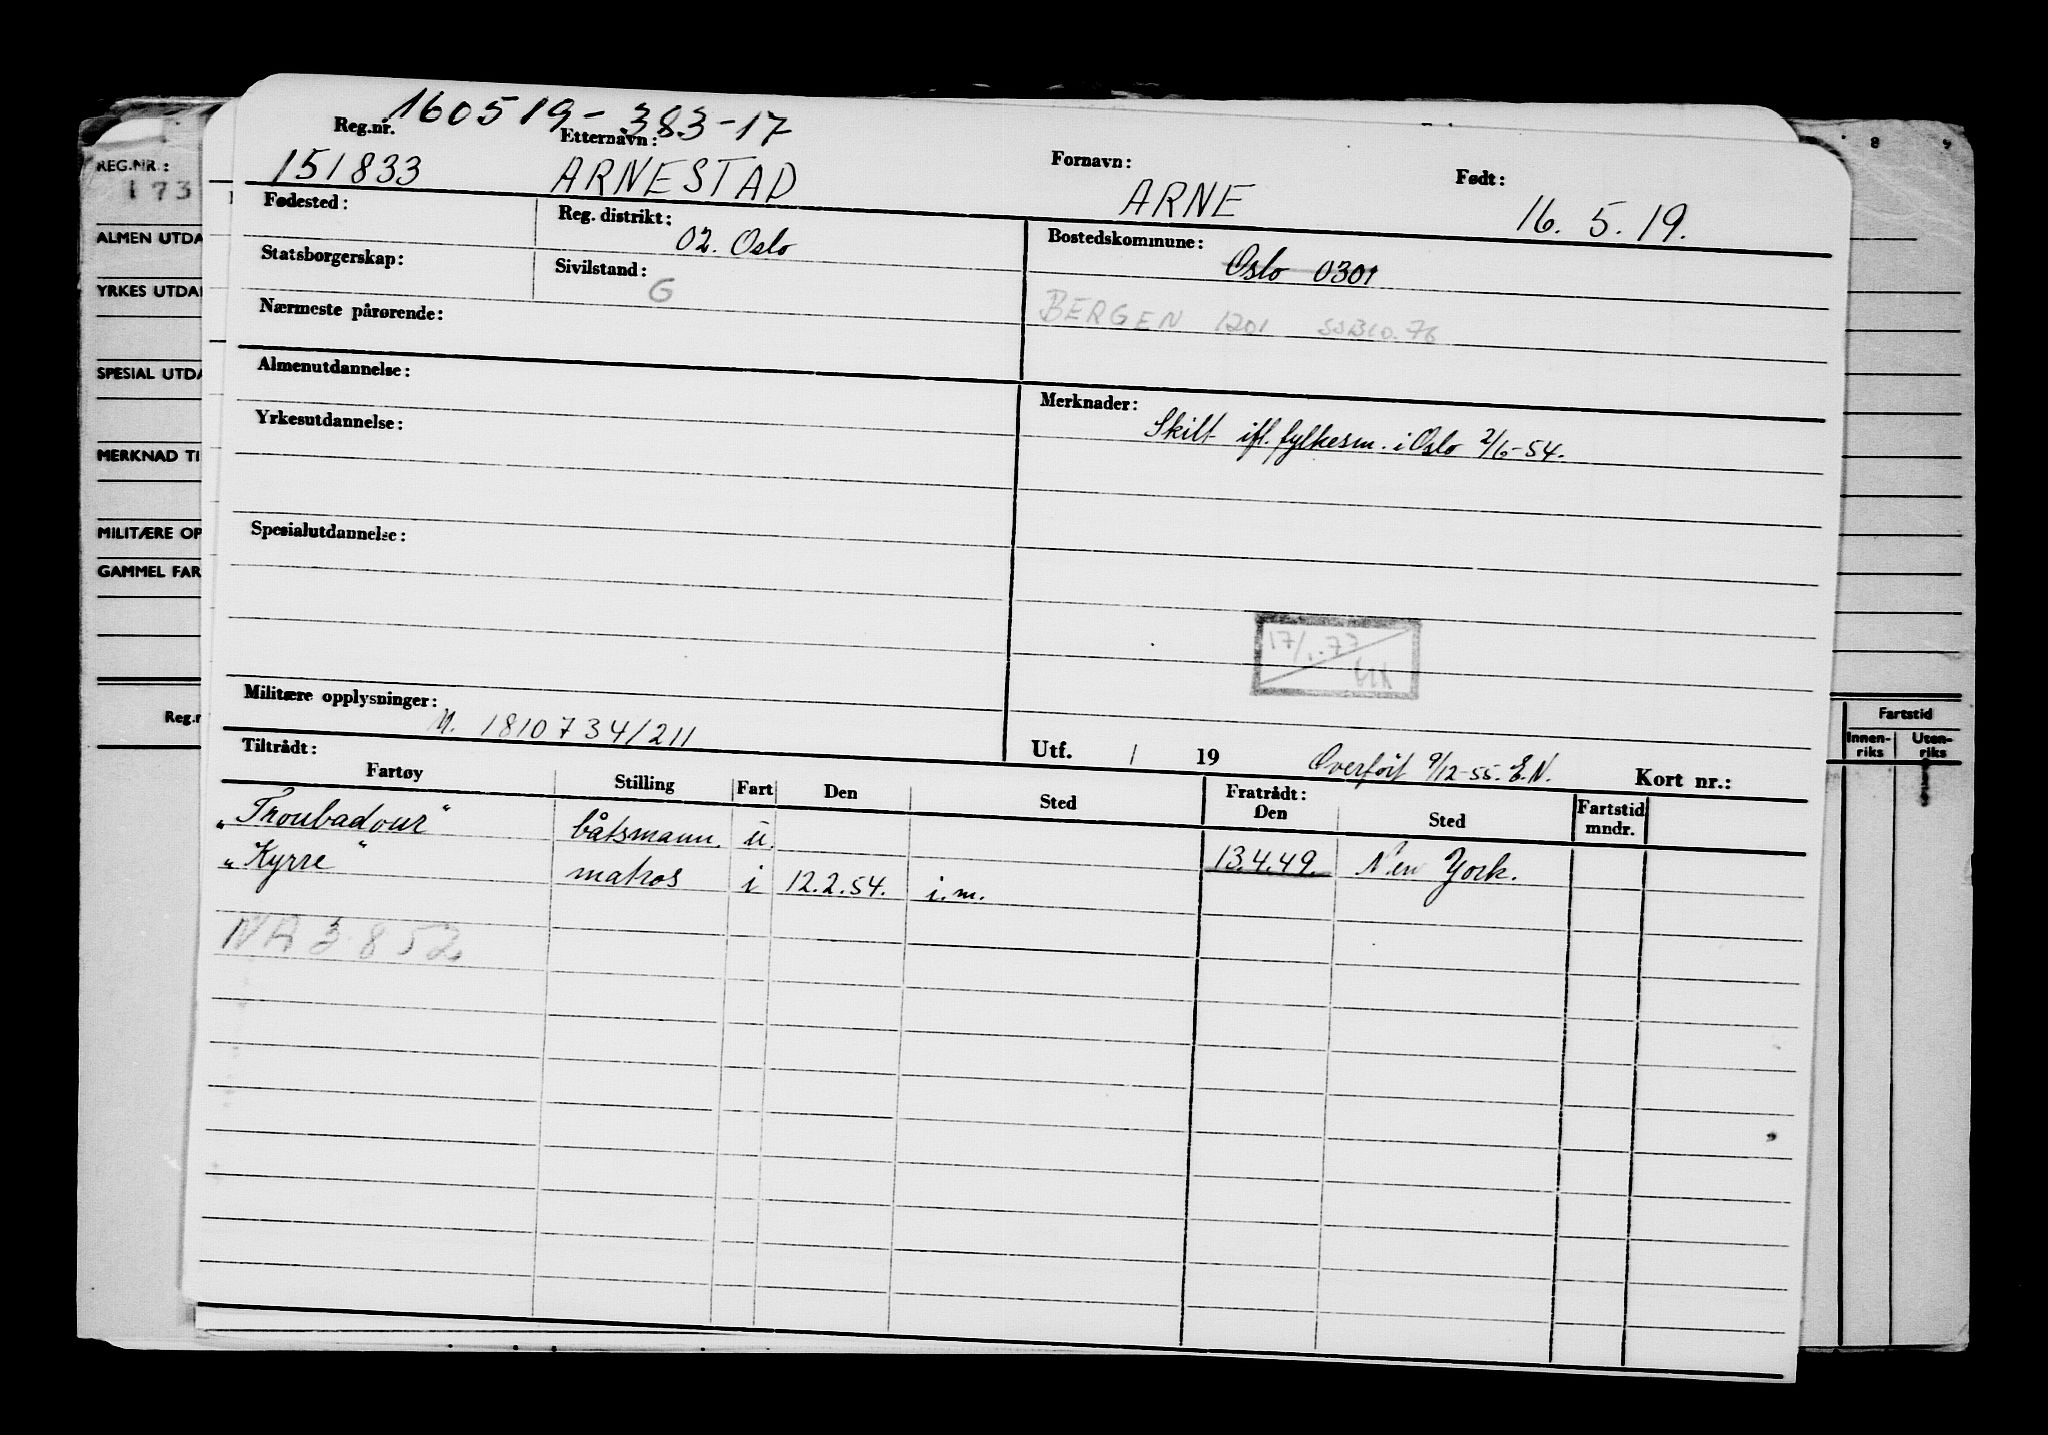 160519-383-17
Reg.nr. Etternavn: Fornavn: Født:
151833 ARNESTAD ARNE 16. 5. 19.
Fødested: Reg. distrikt: 02. Oslo Bostedskommune: Oslo 0301
Statsborgerskap: Sivilstand: G
BERGEN 1201
Nærmeste pårørende:
Almenutdannelse: Merknader:
Skilt ifl. fylkesm. i Oslo 2/6-54.
Yrkesutdannelse:
Spesialutdannelse:
17/1.-77
Militære opplysninger:
M. 1810734/211
Tiltrådt: Utf. / 19 Overført 9/12-55. E.N. Kort nr.:
Fartøy Stilling Fart Den Sted Fratrådt: Den Sted Fartstid mndr.
"Troubadour" båtsmann. u. 13.4.49. New York.
"Kyrre" matros i 12.2.54. i.m.
NA 3852
REG.NR.:
173
ALMEN UTDA
YRKES UTDA
SPESIAL UTDA
MERKNAD TI
MILITÆRE OP
GAMMEL FAR
Reg.n
8
Fartstid
Innen-riks Uten-riks